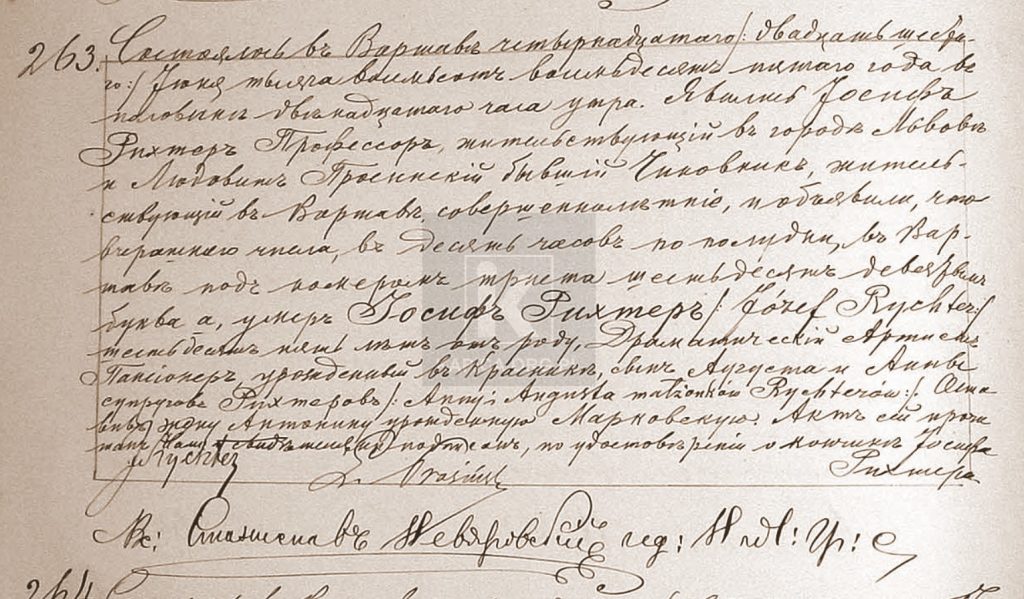 263. Состоялось въ Варшавѣ четырнадцатаго /: двадцать шеста-
го :/ Іюня тысяча восемьсотъ восемьдесятъ пятаго года въ
половинѣ двѣнадцатаго часа утра. Явились Іосифъ
Рихтеръ Профессоръ, жительствующій въ городѣ Львовѣ
и Людовикъ Просинскій бывшій Чиновникъ, житель-
ствующій въ Варшавѣ совершеннолѣтніе, и объявили, что
вчерашняго числа, въ десять часовъ по полудни, въ Вар-
шавѣ подъ номеромъ триста шестьдесятъ девятымъ
буква а, умеръ Іосифъ Рихтеръ /: Józef Rychter :/
шестьдесятъ пять лѣтъ отъ роду, Драматическій Артистъ
Пансіонеръ, урожденный въ Красникѣ, сынъ Августа и Анны
супруговъ Рихтеровъ /: Anny i Augusta małżonków Rychterów :/. Оста-
вивъ жену Антонину урожденную Марковскую. Актъ сей прочи-
танъ Нами и свидѣтелями подписанъ, по удостовѣреніи о кончинѣ Іосифа
Рихтера
J Rychter
Кс: Станиславъ